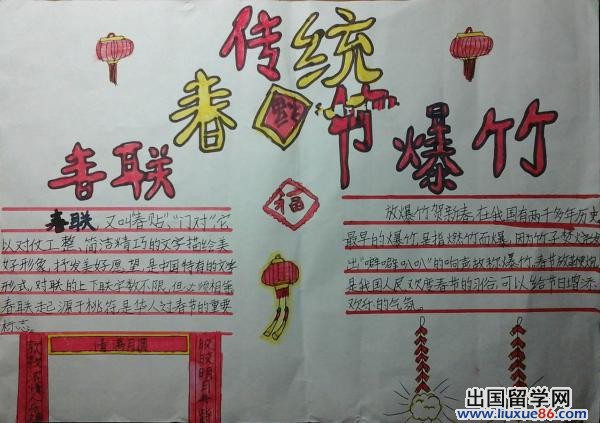 传统
春福节
春联
爆竹
福
春联,又叫"春贴"、"门对"它
以对仗工整、简洁精巧的文字描绘美
好形象,抒发美好愿望,是中国特有的文学
形式,对联的上下联字数不限,但必须相等
春联起源于桃符,是华人过春节的重要
标志。
放爆竹贺新春,在我国有两千多年历史
最早的爆竹,是指燃竹而爆,因
出"噼噼叭叭"的响声故称爆竹。春节
是我国人民欢度春节的习俗,可以给节日增添
欢乐的气氛。
情满月圆
皎皎明月
出国留学网
www.liuxue86.com